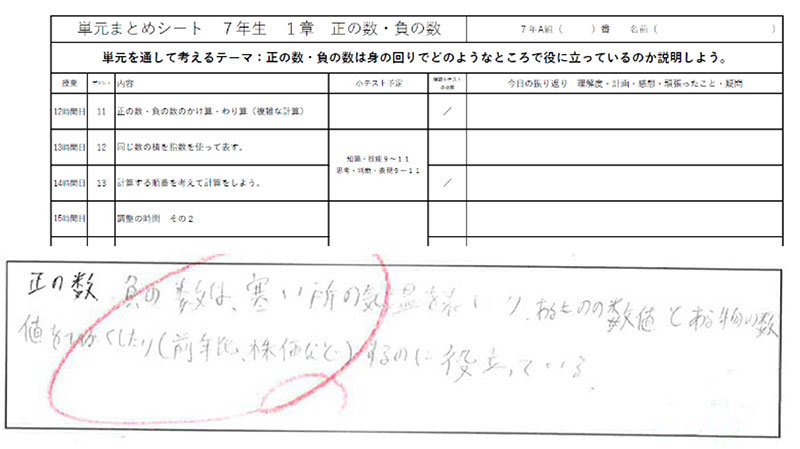 単元まとめシート 7年生 1章 正の数・負の数
7年A組( )番 名前( )
単元を通して考えるテーマ:正の数・負の数は身の回りでどのようなところで役に立っているのか説明しよう。
授業 プリント 内容 小テスト予定 今日の振り返り 理解度・計画・感想・頑張ったこと・疑問
12時間目 11 正の数・負の数のかけ算・わり算(複雑な計算) /
13時間目 12 同じ数の積を指数を使って表す。
知識・技能9~11
思考・判断・表現9~11
14時間目 13 計算する順番を考えて計算をしよう。 /
15時間目 調整の時間 その2
正の数、負の数は、寒い所の気温を表したり、あるものの数値とある物の数
値をしたり(前年比、株価など)するのに役立っている。